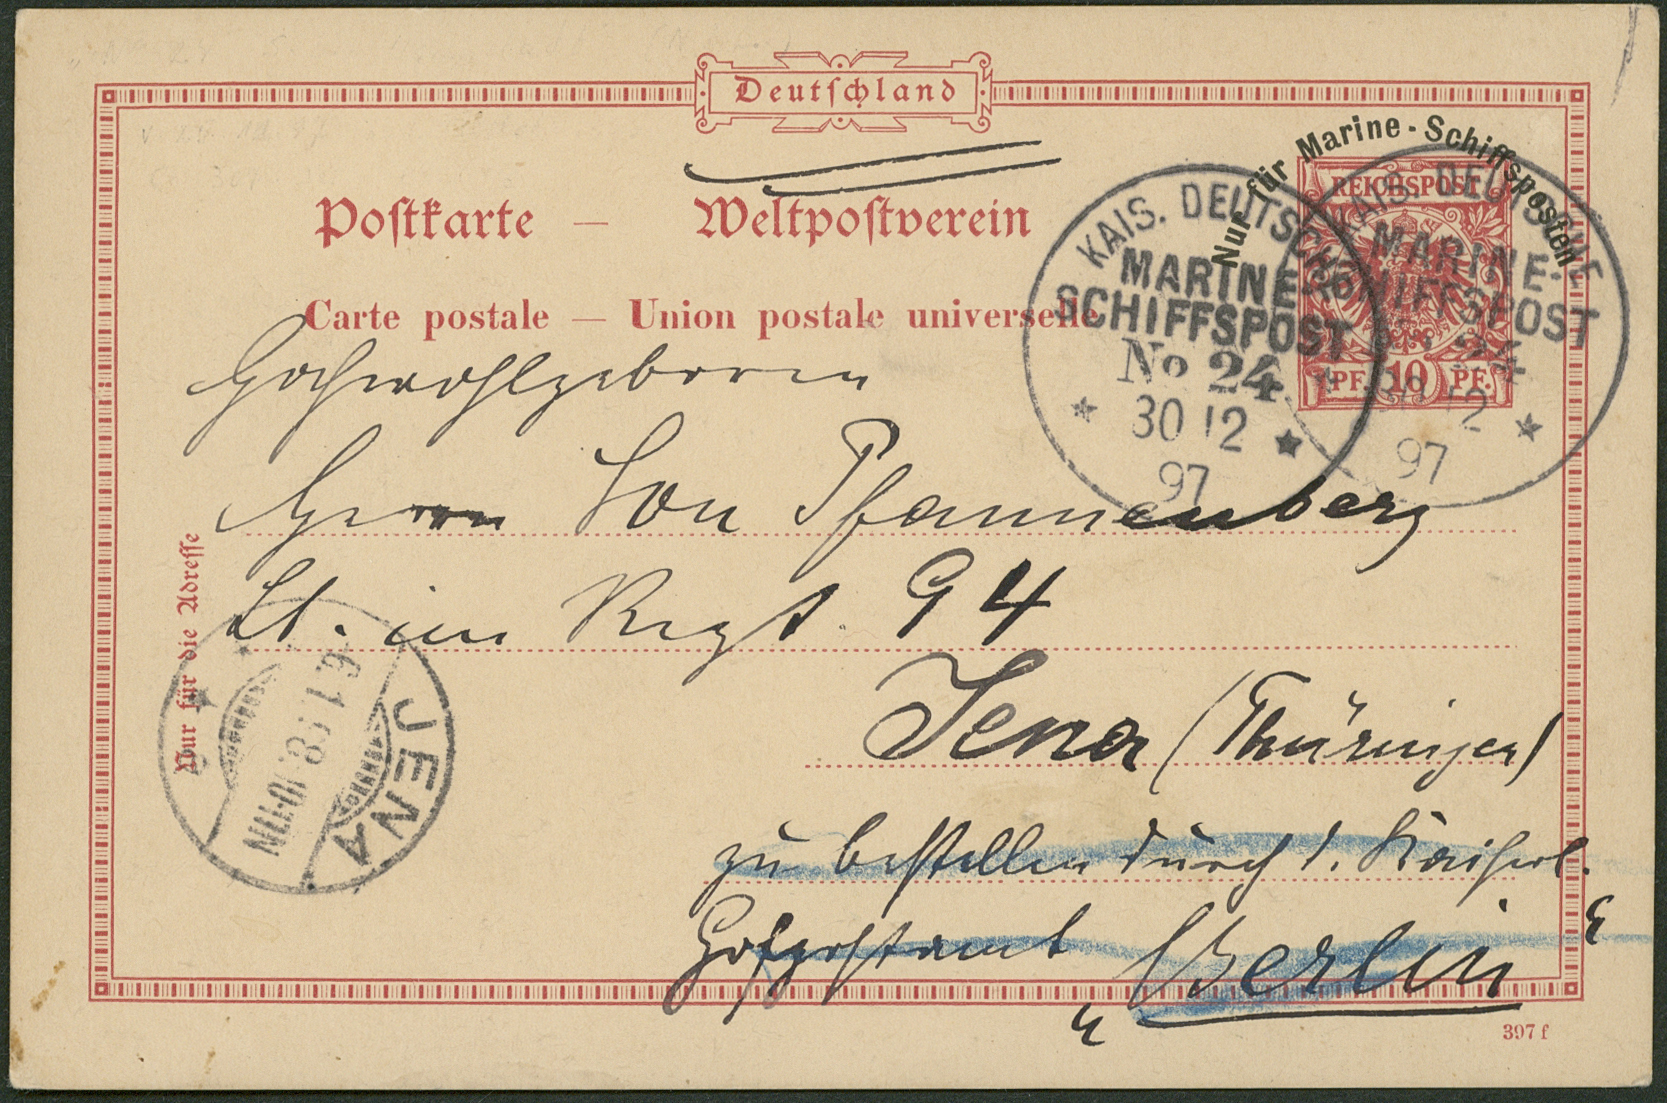 Deutschland
Nur für Marine-Schiffsposten
REICHSPOST
PF. 10 PF.
Postkarte — Weltpostverein
Carte postale — Union postale universelle.
KAIS. DEUTSCHE
MARINE-
SCHIFFSPOST
No 24
30 12
97
KAIS. DEUTSCHE
MARINE-
SCHIFFSPOST
No 24
30 12
97
Hochwohlgeboren
Herrn von Pfannenberg
Lt. im Regt. 94
Jena (Thüringen)
zu bestellen durch d. Kaiserl.
Hofpostamt „Berlin“
Nur für die Adresse
JENA
6.1.98.10-11N
397 f